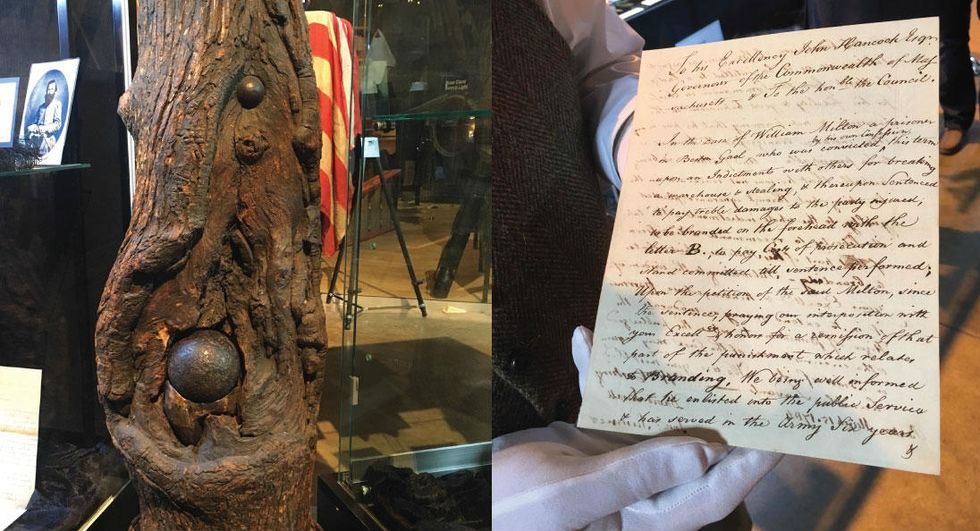 To his Excellency John Hancock Esqr.
Governour of the Commonwealth of Mass
achusetts. & To the honble. the Council.
In the Case of William Milton a prisoner
in Boston Gaol, who was convicted, by his own Confession, this term
upon an Indictment with others for breaking
a warehouse & stealing, & thereupon Sentenced
to pay treble damages to the party injured,
to be branded on the forehead with the
letter B., to pay Costs of prosecution and
stand committed till sentence performed;
Upon the petition of the said Milton, since
the sentence, praying our interposition with
your Excelly. & honors for a remission of that
part of the punishment which relates
to Branding, We being well informed
that he enlisted into the public Service
& has served in the Army Six years
&